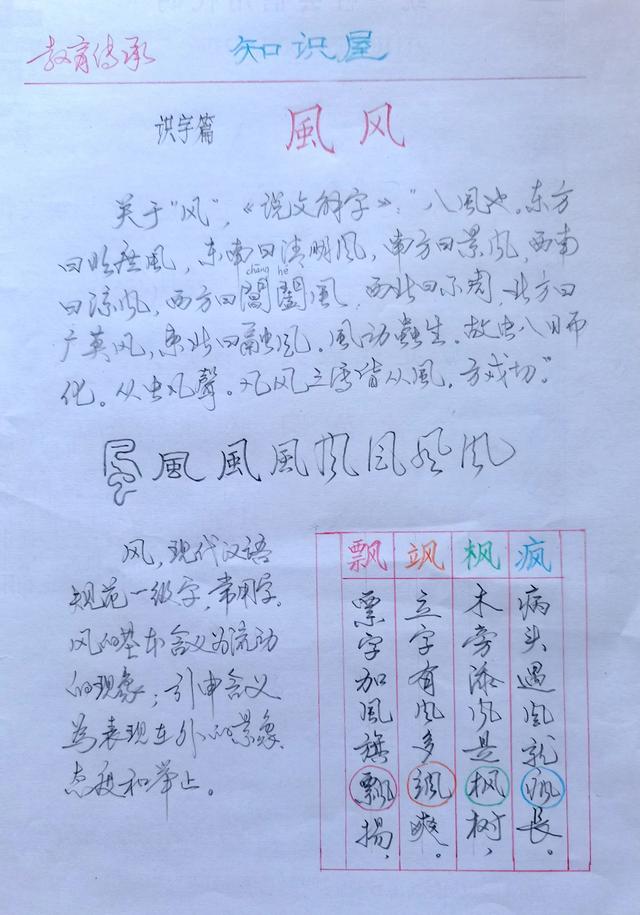 教育传承
知识屋
识字篇 風 风
关于“风”，《说文解字》：“八風也。东方
曰明庶風，东南曰清明風，南方曰景风，西南
曰凉风，西方曰閶闔風，西北曰不周，北方曰
chāng hé
广莫风，东北曰融风。風动蟲生。故虫八日而
化。从虫凡聲。凡风之属皆从風。方戎切。”
風 風 風 风 风 风 风
风，现代汉语
规范一级字，常用字。
风的基本含义为流动
的现象；引申含义
为表现在外的景象、
态度和举止。
飘 飒 枫 疯
票字加風旗飘揚，
立字有风多飒爽。
木旁添风是枫树，
病头遇风就疯長。